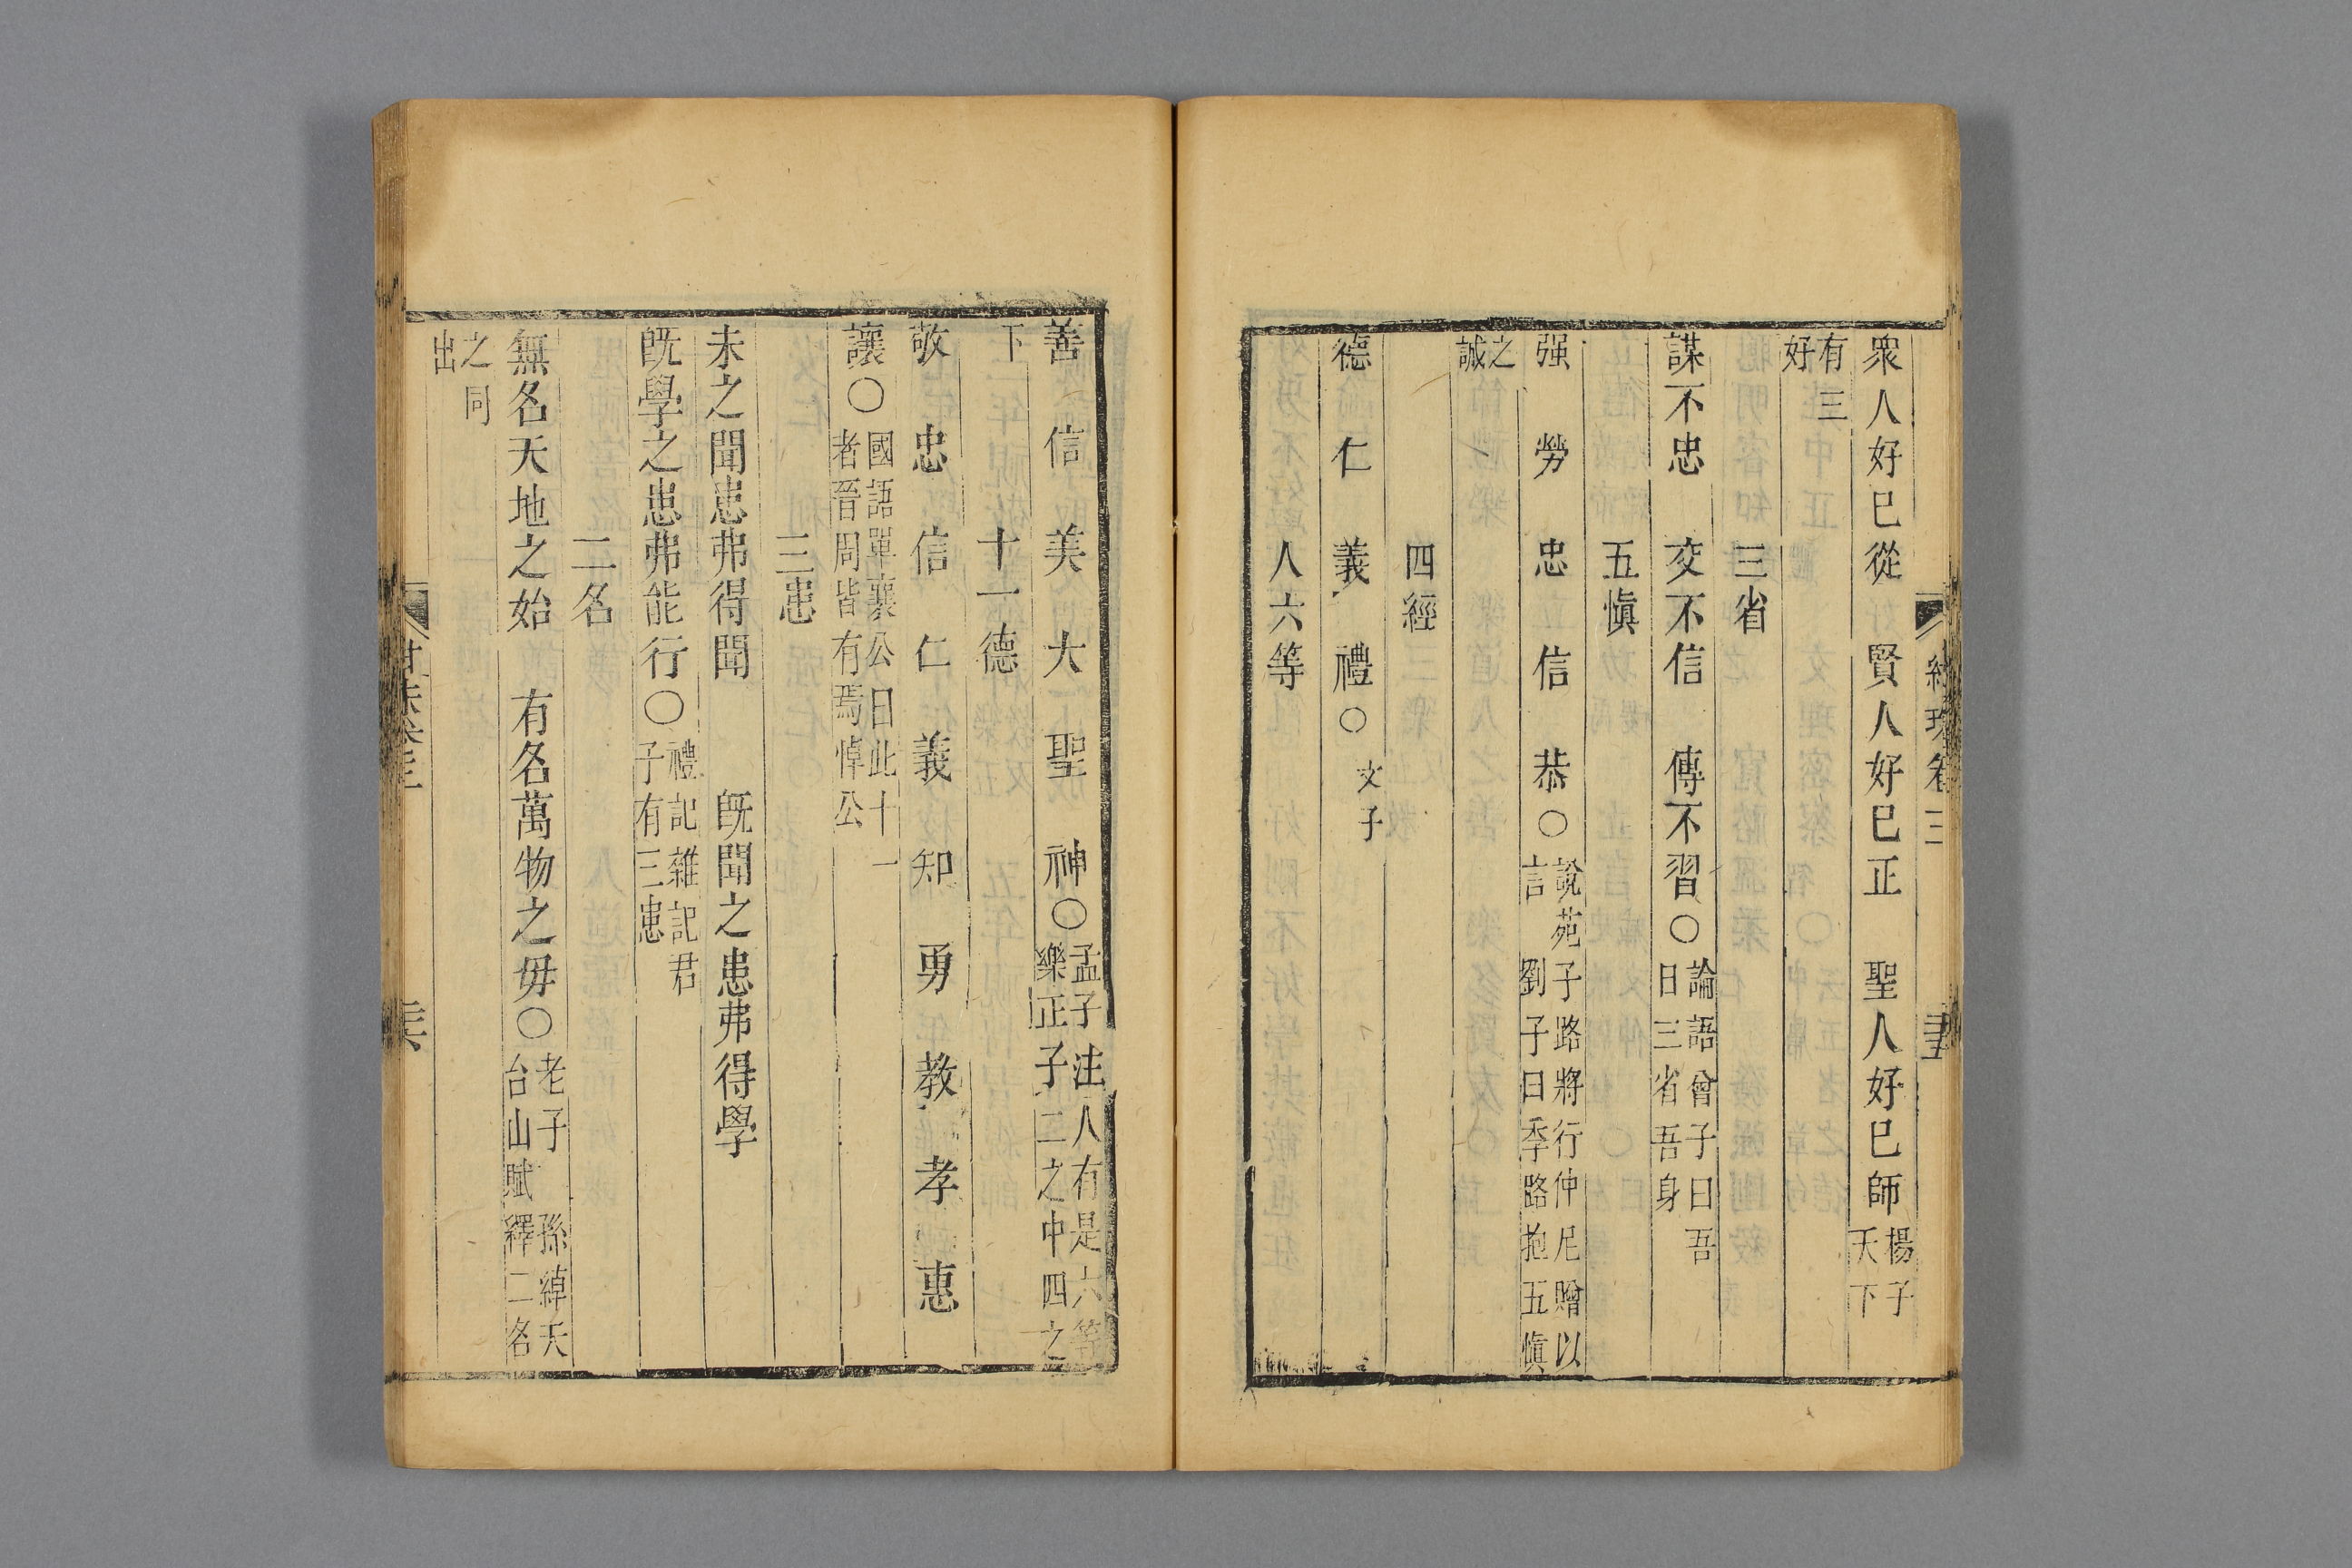 衆人好已從　賢人好已正　聖人好已師 楊子天下
有三好
三省
謀不忠　交不信　傳不習○ 論語曾子曰吾日三省吾身
五愼
强　勞　忠　信　恭○ 說苑子路將行仲尼贈以言 劉子曰季路抱五愼
之誠
四經
德　仁　義　禮○ 文子
人六等
善　信　美　大　聖　神○ 孟子注人有是六等樂正子二之中四之
下
十一德
敬　忠　信　仁　義　知　勇　教　孝　惠
讓○ 國語單襄公曰此十一者晉周皆有焉悼公
三患
未之聞患弗得聞　旣聞之患弗得學
旣學之患弗能行○ 禮記雜記君子有三患
二名
無名天地之始　有名萬物之毋○ 老子 孫綽天台山賦 釋二名
之同出